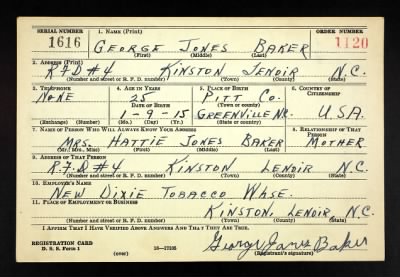 SERIAL NUMBER 1. NAME (Print) ORDER NUMBER
1616 GEORGE JONES BAKER 1120
(First) (Middle) (Last)
2. ADDRESS (Print)
R.F.D #4 KINSTON LENOIR N.C.
(Number and street or R. F. D. number) (Town) (County) (State)
3. TELEPHONE 4. AGE IN YEARS 5. PLACE OF BIRTH 6. COUNTRY OF CITIZENSHIP
NONE 25 PITT CO.
DATE OF BIRTH (Town or county)
1-9-15 GREENVILLE N.C. U.S.A.
(Exchange) (Number) (Mo.) (Day) (Yr.) (State or country)
7. NAME OF PERSON WHO WILL ALWAYS KNOW YOUR ADDRESS 8. RELATIONSHIP OF THAT PERSON
MRS. HATTIE JONES BAKER MOTHER
(Mr., Mrs., Miss) (First) (Middle) (Last)
9. ADDRESS OF THAT PERSON
R.F.D #4 KINSTON LENOIR N.C.
(Number and street or R. F. D. number) (Town) (County) (State)
10. EMPLOYER'S NAME
NEW DIXIE TOBACCO WHSE.
11. PLACE OF EMPLOYMENT OR BUSINESS
KINSTON, LENOIR, N.C.
(Number and street or R. F. D. number) (Town) (County) (State)
I AFFIRM THAT I HAVE VERIFIED ABOVE ANSWERS AND THAT THEY ARE TRUE.
REGISTRATION CARD George Jones Baker
D. S. S. Form 1 (over) 16-17105 (Registrant's signature)